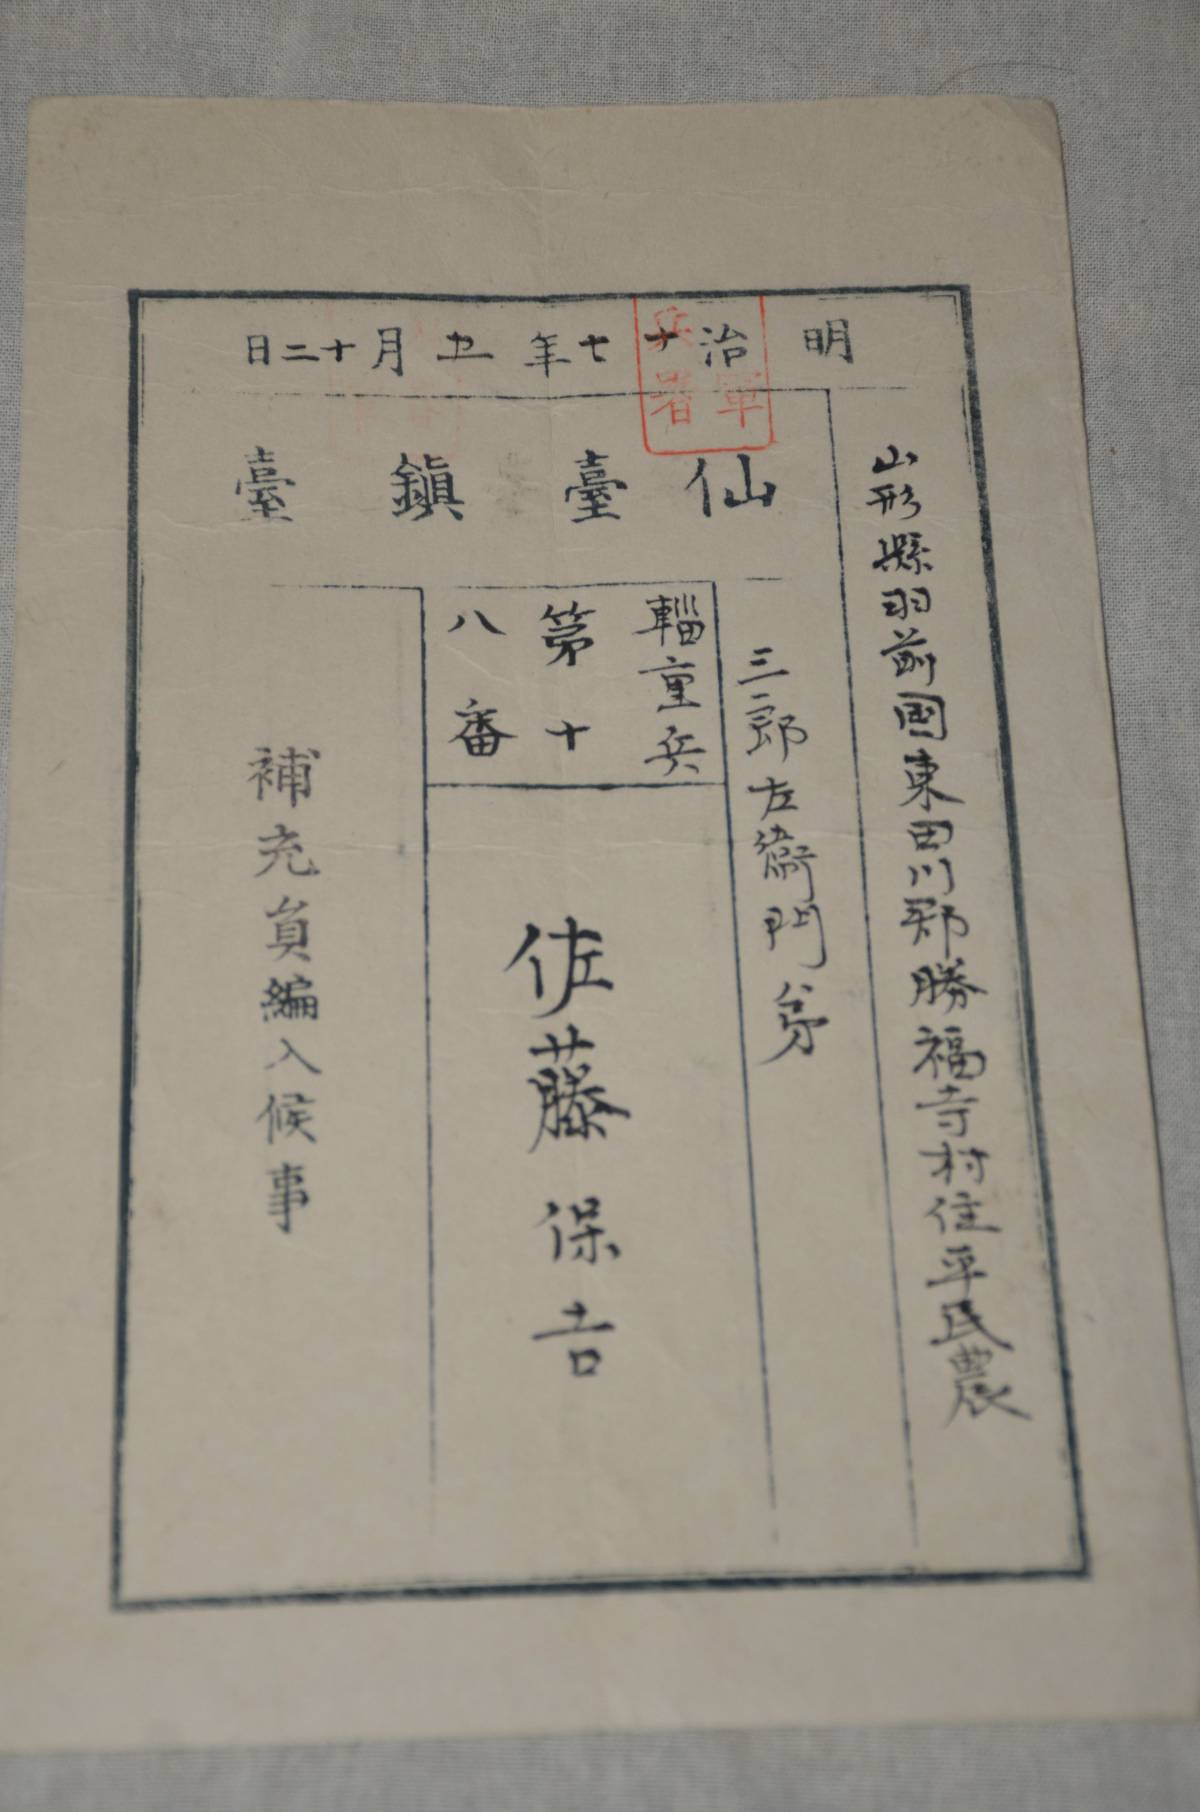 明治十七年五月十二日
山形縣羽前國東田川郡勝福寺村住平民農
仙臺鎮臺
三郎左衛門弟
輜重兵
第十
八番
佐藤保吉
補充員編入候事
軍
兵署